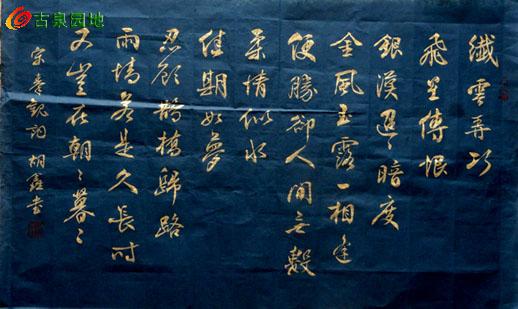 古泉园地
纖雲弄巧
飛星傳恨
銀漢迢々暗度
金風玉露一相逢
便勝卻人間无數
柔情似水
佳期如夢
忍顧鵲橋歸路
兩情若是久長時
又豈在朝々暮々
宋秦觀詞 胡鑫書